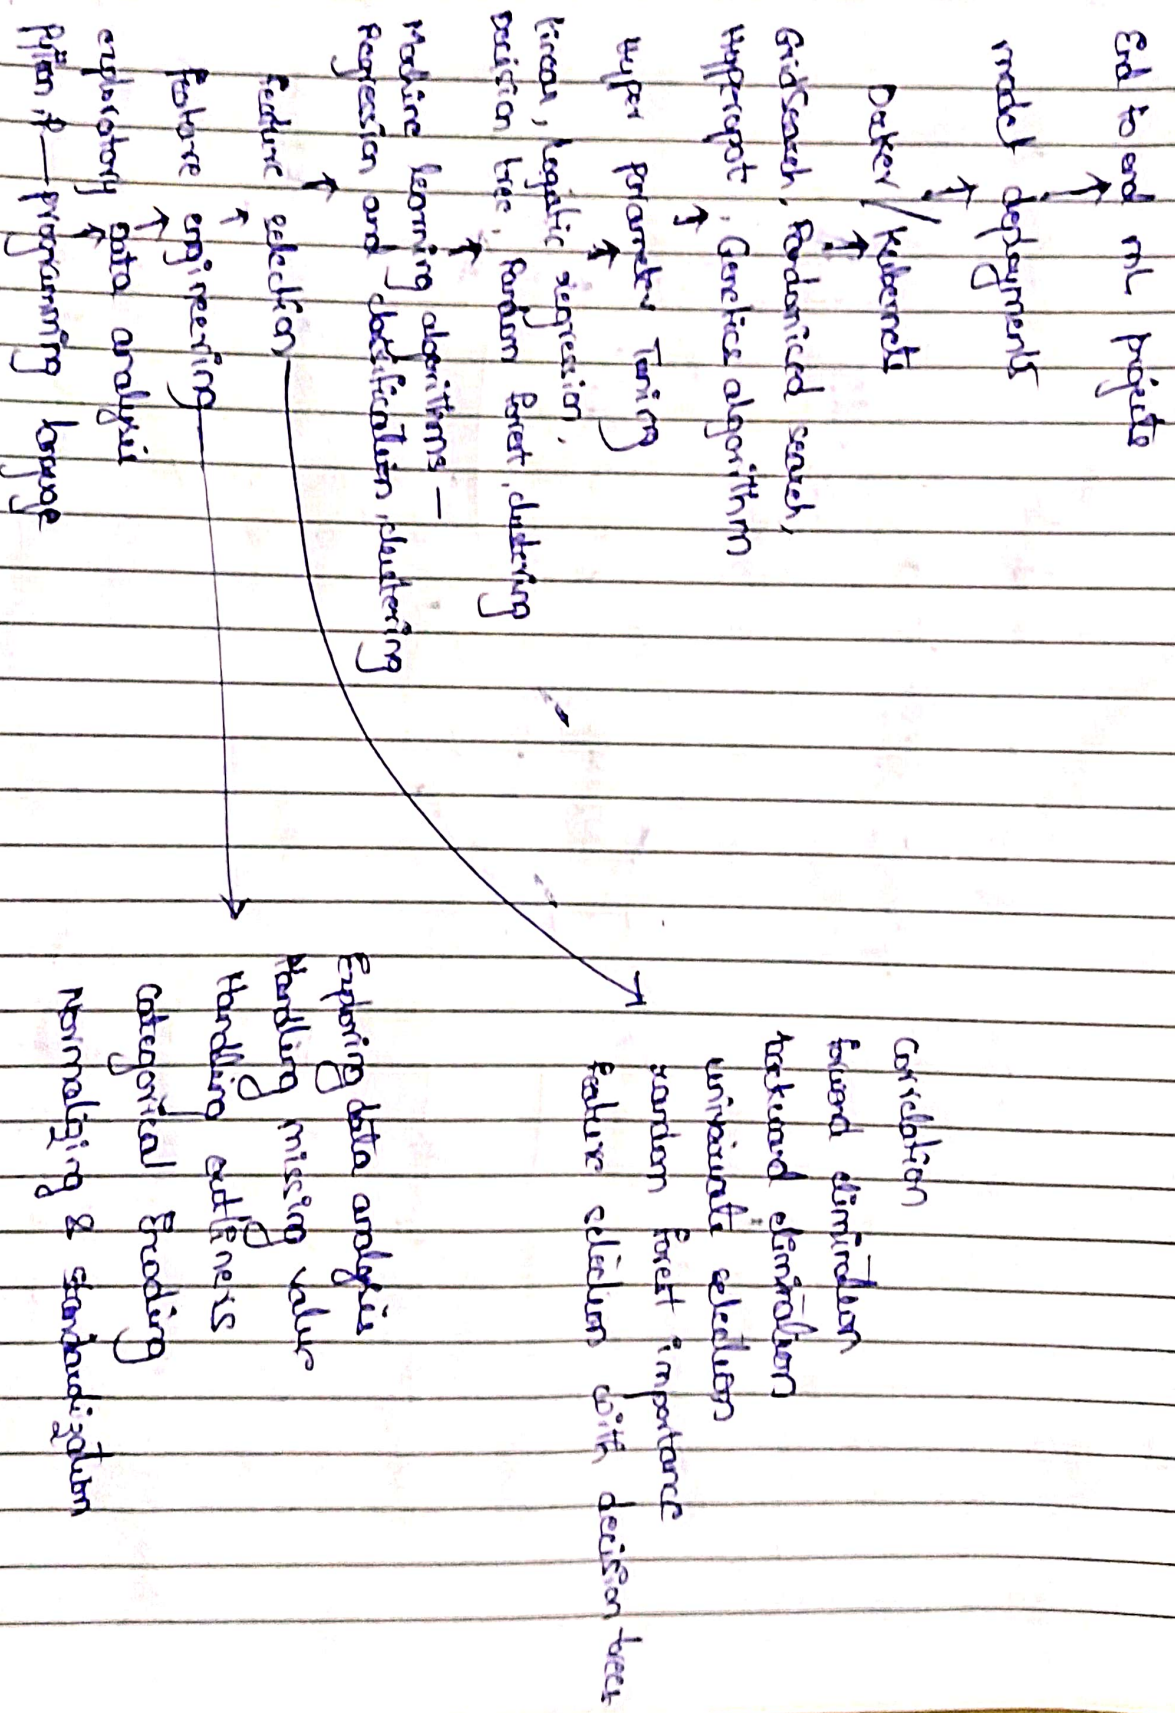 End to end ML projects
model deployments
Docker / Kubernets
GridSearch, Randomised search,
Hyperopot, Genetics algorithm
Hyper parameter Tuning
Linear, Logistic regression,
Decision tree, Random forest, clustering
Machine learning algorithms —
Regression and classification, clustering
Feature selection
Feature engineering
exploratory data analysis
— programming
Correlation
forward elimination
backward elimination
univariate selection
random forest importance
feature selection with decision trees
Exploring data analysis
Handling missing value
Handling outliners
Categorical Encoding
Normalizing & standardization